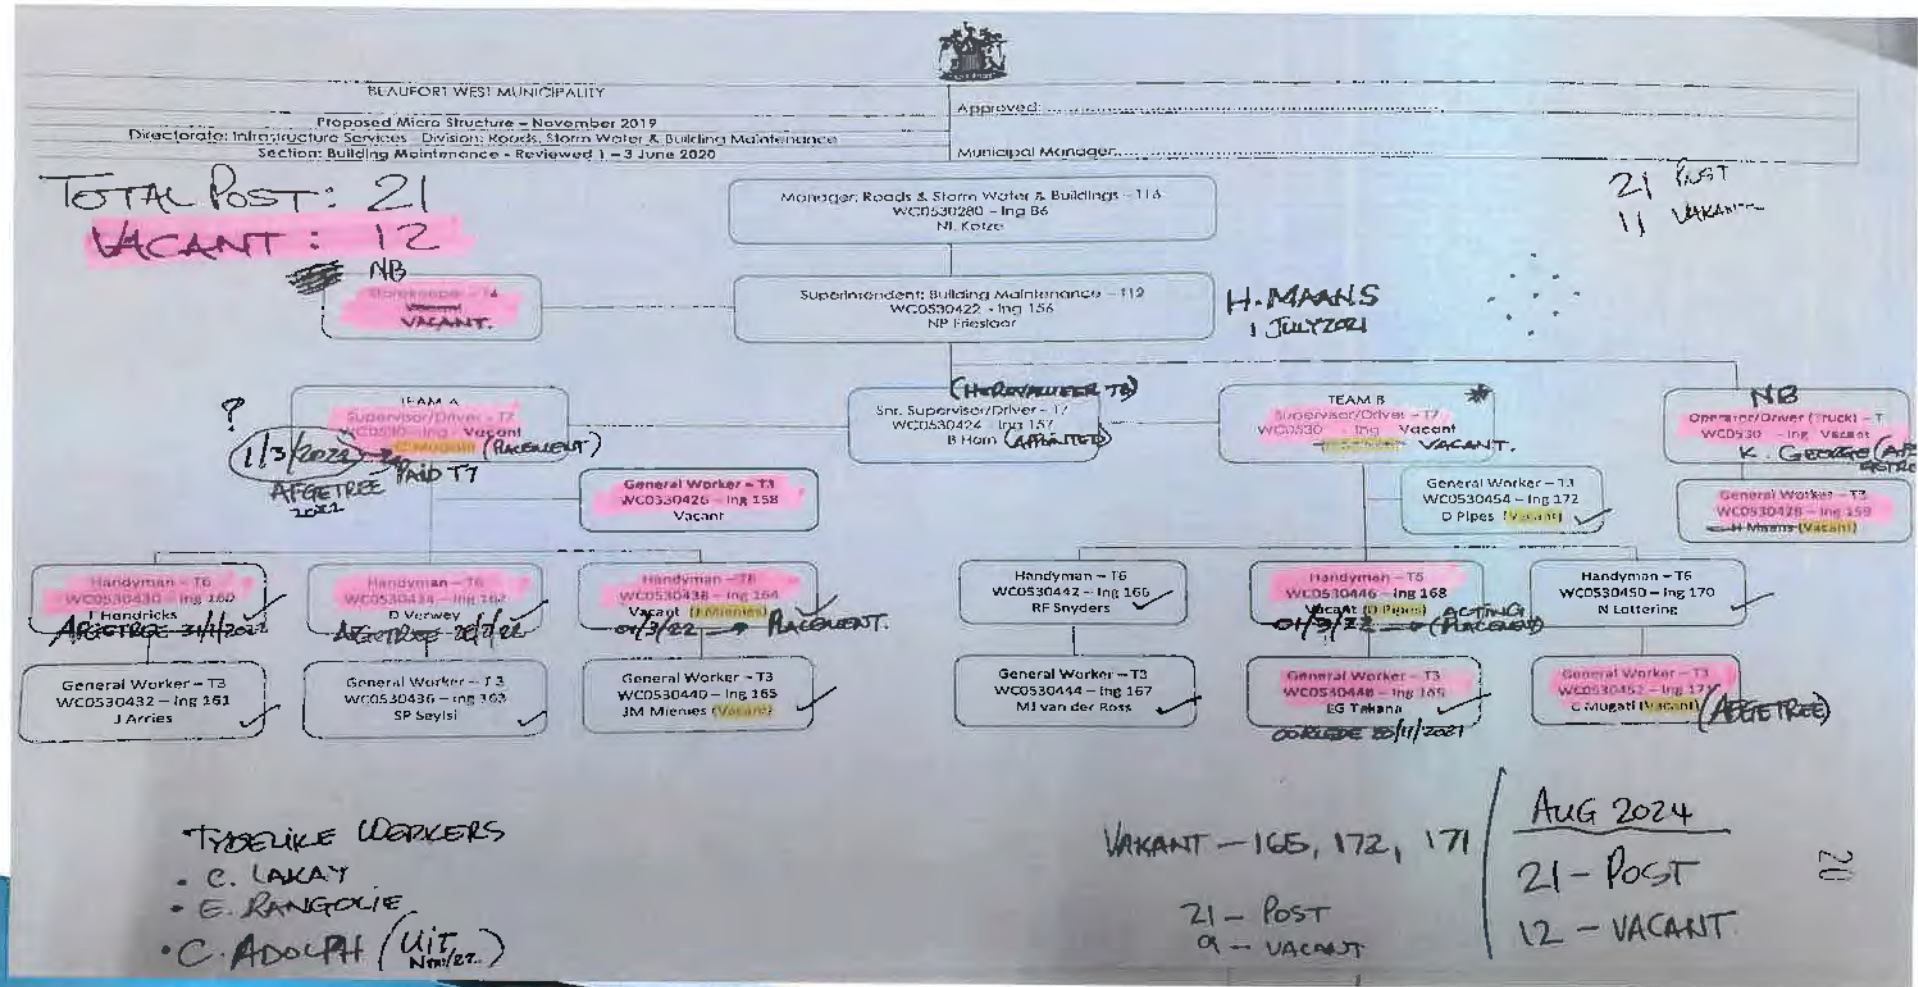 BEAUFORT WEST MUNICIPALITY
Proposed Micro Structure – November 2019
Directorate: Infrastructure Services - Division: Roads, Storm Water & Building Maintenance
Section: Building Maintenance - Reviewed 1 – 3 June 2020
Approved:
Municipal Manager
TOTAL POST: 21
VACANT: 12
NB
21 POST
11 VAKANT
Manager: Roads & Storm Water & Buildings – T16
WC0530280 – Ing 86
NL Kotze
Storekeeper – T6
VACANT.
Superintendent: Building Maintenance – T12
WC0530422 - Ing 156
NP Frieslaar
H. MAANS
1 JULY 2021
?
TEAM A
Supervisor/Driver – T7
WC0530 – Ing Vacant
C Mugati (PLACEMENT)
1/3/2022
PAID T7
AFGETREE
2022
(HEREVALUEER T8)
Snr. Supervisor/Driver – T7
WC0530424 – Ing 157
B Horn (APPOINTED)
TEAM B
Supervisor/Driver – T7
WC0530 – Ing Vacant
VACANT.
NB
Operator/Driver (Truck) – T
WC0530 – Ing Vacant
K. GEORGE
General Worker – T3
WC0530426 – Ing 158
Vacant
General Worker – T3
WC0530454 – Ing 172
D Pipes (Vacant)
General Worker – T3
WC0530428 – Ing 159
H Maans (Vacant)
Handyman – T6
WC0530430 – Ing 160
Hendricks
AFGETREE 31/1/2022
Handyman – T6
WC0530434 – Ing 162
D Verwey
AFGETREE 28/2/22
Handyman – T6
WC0530438 – Ing 164
Vacant (J Mienies)
01/3/22 → PLACEMENT.
Handyman – T6
WC0530442 – Ing 166
RF Snyders
Handyman – T6
WC0530446 – Ing 168
Vacant (D Pipes) ACTING
01/3/22 → (PLACEMENT)
Handyman – T6
WC0530450 – Ing 170
N Lottering
General Worker – T3
WC0530432 – Ing 161
J Arries
General Worker – T3
WC0530436 – Ing 163
SP Seylsi
General Worker – T3
WC0530440 – Ing 165
JM Mienies (Vacant)
General Worker – T3
WC0530444 – Ing 167
MJ van der Ross
General Worker – T3
WC0530448 – Ing 169
EG Takana
OORLEDE
General Worker – T3
WC0530452 – Ing 171
C Mugati (Vacant) (AFGETREE)
• TYDELIKE WORKERS
• C. LAKAY
• E. RANGOLIE
• C. ADOLPH (UIT
VAKANT – 165, 172, 171
21 – POST
9 – VACANT
AUG 2024
21 – POST
12 – VACANT
20